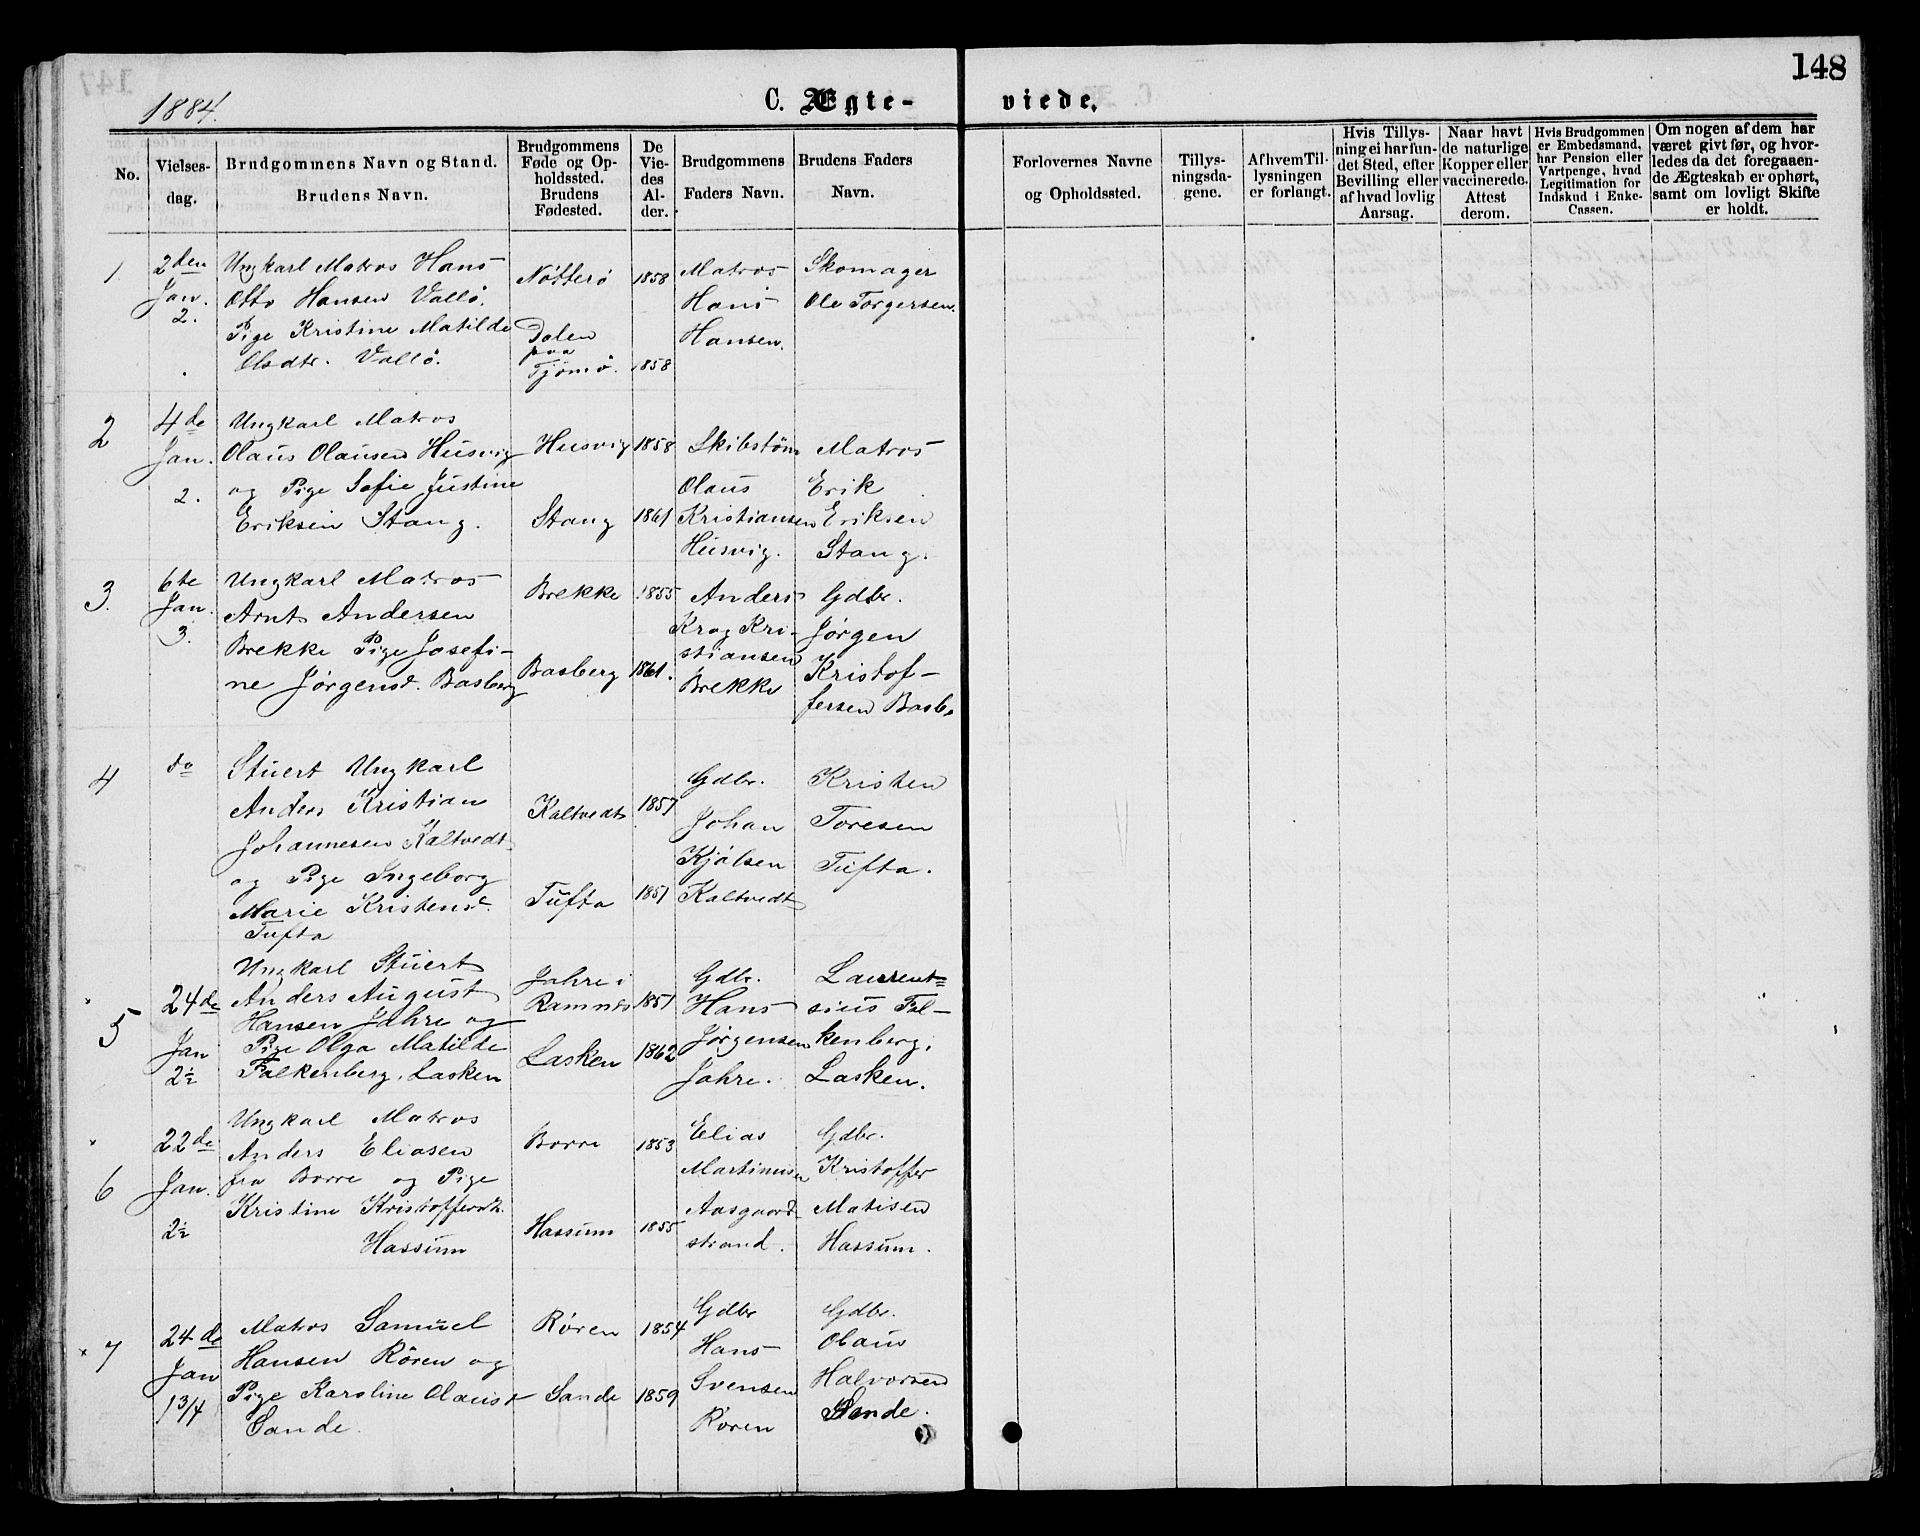 148
1884.
C. Ægte-
viede.
No.
Vielses-
dag.
Brudgommens Navn og Stand.
Brudens Navn.
Brudgommens
Føde og Op-
holdssted.
Brudens
Fødested.
De
Vie-
des
Al-
der.
Brudgommens
Faders Navn.
Brudens Faders
Navn.
Forlovernes Navne
og Opholdssted.
Tillys-
ningsda-
gene.
Af hvem Til-
lysningen
er forlangt.
Hvis Tillys-
ning ei har fun-
det Sted, efter
Bevilling eller
af hvad lovlig
Aarsag.
Naar havt
de naturlige
Kopper eller
vaccinerede.
Attest
derom.
Hvis Brudgommen
er Embedsmand,
har Pension eller
Vartpenge, hvad
Legitimation for
Indskud i Enke-
Cassen.
Om nogen af dem har
været givt før, og hvor-
ledes da det foregaaen-
de Ægteskab er ophørt,
samt om lovligt Skifte
er holdt.
1
2den
Jan.
2.
Ungkarl Matros Hans
Otto Hansen Vallö.
Pige Kristine Matilde
Olsdtr. Vallö.
Nötterö
Dalen
paa
Tjömö.
1858
1858
Matros
Hans
Hansen.
Skomager
Ole Torgersen.
2
4de
Jan.
2.
Ungkarl Matros
Olaus Olausen Husvig
og Pige Sofie Justine
Eriksen Stang.
Husvig
Stang
1858
1861
Skibstöm
Olaus
Kristiansen
Husvig.
Matros
Erik
Eriksen
Stang.
3.
6te
Jan.
3.
Ungkarl Matros
Arnt Andersen
Brekke Pige Josefi-
ne Jørgensd. Basberg
Brekke
Basberg
1855
1861.
Anders
Krog Kri-
stiansen
Brekke
Gdbr.
Jørgen
Kristof-
fersen Basb.
4
do
Stuert Ungkarl
Anders Kristian
Johannesen Kaltvedt
og Pige Ingeborg
Marie Kristensd.
Tufta
Kaltvedt
Tufta
1857
1851
Gdbr.
Johan
Kjølsen
Kaltvedt
Kristen
Toresen
Tufta.
5
24de
Jan
2½
Ungkarl Stuert
Anders August
Hansen Jahre og
Pige Olga Matilde
Falkenberg. Lasken
Jahre i
Ramnes
Lasken
1851
1862
Gdbr.
Hans
Jørgensen
Jahre.
Laurent=
sius Fal-
kenberg.
Lasken.
6
22de
Jan.
2½
Ungkarl Matros
Anders Eliasen
fra Borre og Pige
Kristine Kristoffersdt.
Hassum
Borre
Hassum
1853
1855
Elias
Martinusen
Aasgaard
strand.
Gdbr.
Kristoffer
Matisen
Hassum.
7
24de
Jan
1 3/4
Matros Samuel
Hansen Røren og
Pige Karoline Olausd
Sande.
Røren
Sande
1854
1859
Gdbr
Hans
Svensen
Røren
Gdbr.
Olaus
Halvorsen
Sande.